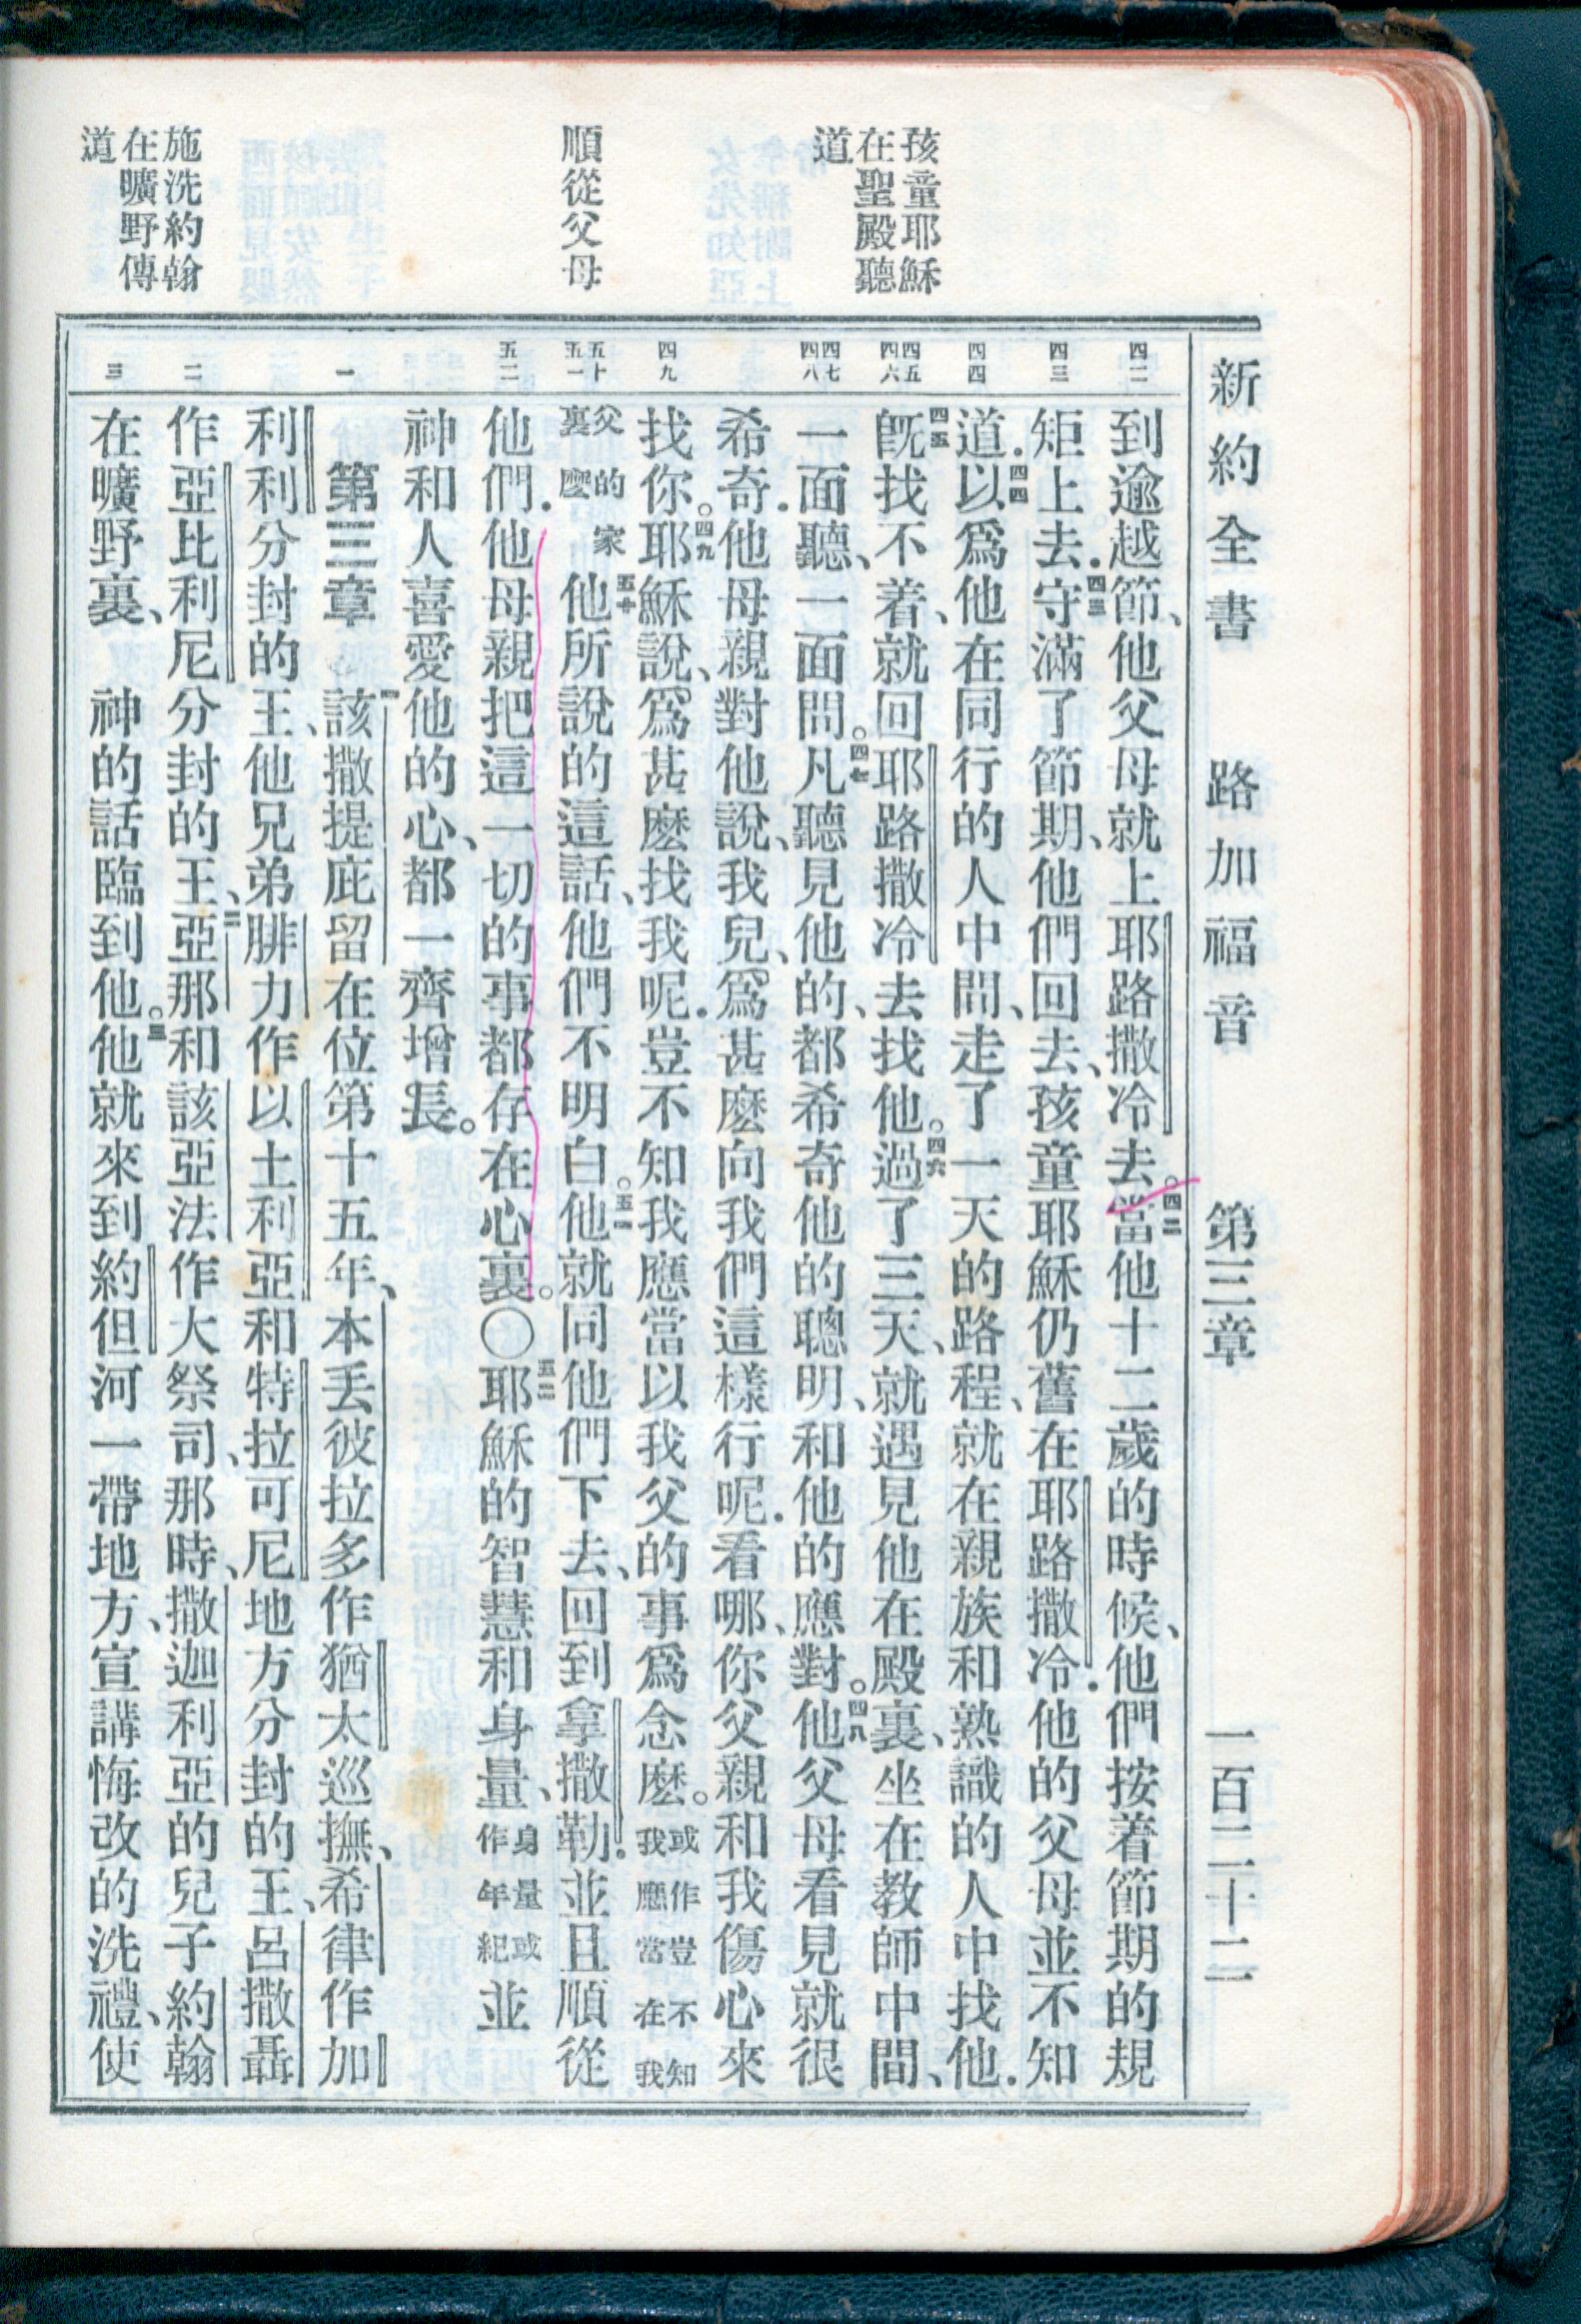 新約全書　路加福音　第三章　一百二十二
孩童耶穌
在聖殿聽
道
順從父母
施洗約翰
在曠野傳
道
四二
四三
四四
四五
四六
四七
四八
四九
五十
五一
五二
一
二
三
到逾越節、他父母就上耶路撒冷去。四二當他十二歲的時候、他們按着節期的規
矩上去．四三守滿了節期、他們回去、孩童耶穌仍舊在耶路撒冷．他的父母並不知
道．四四以爲他在同行的人中間、走了一天的路程、就在親族和熟識的人中找他．
四五旣找不着、就回耶路撒冷去找他。四六過了三天、就遇見他在殿裏、坐在教師中間、
一面聽、一面問。四七凡聽見他的、都希奇他的聰明、和他的應對。四八他父母看見就很
希奇．他母親對他說、我兒、爲甚麽向我們這樣行呢．看哪、你父親和我傷心來
找你。四九耶穌說、爲甚麽找我呢．豈不知我應當以我父的事爲念麽。或作豈不知我應當在我
父的家裏麽五十他所說的這話、他們不明白。五一他就同他們下去、回到拿撒勒．並且順從
他們．他母親把這一切的事都存在心裏。〇五二耶穌的智慧和身量、身量或作年紀並
神和人喜愛他的心、都一齊增長。
第三章　一該撒提庇留在位第十五年、本丢彼拉多作猶太巡撫、希律作加
利利分封的王、他兄弟腓力作以土利亞和特拉可尼地方分封的王、呂撒聶
作亞比利尼分封的王、二亞那和該亞法作大祭司、那時、撒迦利亞的兒子約翰
在曠野裏、　神的話臨到他。三他就來到約但河一帶地方、宣講悔改的洗禮、使